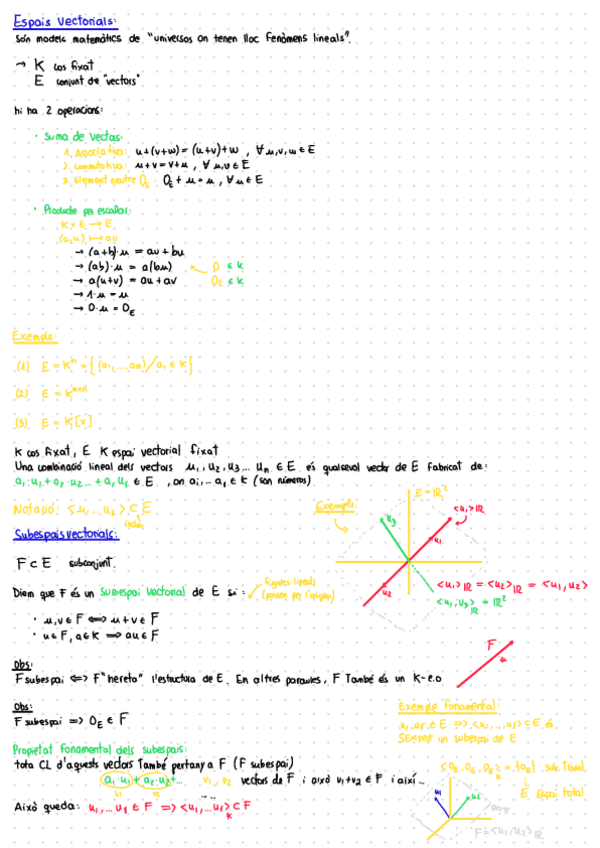 Espais vectorials:
són models matemàtics de "universos on tenen lloc fenòmens lineals".
→ K cos fixat
E conjunt de "vectors"
hi ha 2 operacions:
· Suma de vectors:
1. Associativa: u+(v+w) = (u+v)+w , ∀ u,v,w ∈ E
2. Commutativa: u+v = v+u , ∀ u,v ∈ E
3. Element neutre 0_E : 0_E + u = u , ∀ u ∈ E
· Producte per escalar:
K × E → E
(a,u) ↦ au
→ (a+b)·u = au + bu
→ (ab)·u = a(bu)
0 ∈ K
→ a(u+v) = au + av
0_E ∈ K
→ 1·u = u
→ 0·u = 0_E
Exemple:
(1) E = K^n = {(a1,...,an) / ai ∈ K}
(2) E = K^mxn
(3) E = K[x]
K cos fixat, E K espai vectorial fixat
Una combinació lineal dels vectors u1, u2, u3... un ∈ E és qualsevol vector de E fabricat de:
a1·u1 + a2·u2 ... + ar ur ∈ E , on ai,... ar ∈ K (són números)
Notació: <u1 ... ur> ⊂ E
Exemple:
E = ℝ²
<u1>ℝ
u3
u1
u2
<u1>ℝ = <u2>ℝ = <u1, u2>
<u1, u3>ℝ = ℝ²
Subespais vectorials:
F ⊂ E subconjunt.
Diem que F és un subespai vectorial de E si:
figures lineals
(passen per l'origen)
· u,v ∈ F ⟺ u+v ∈ F
· u ∈ F, a ∈ K ⟹ au ∈ F
F
u
Obs:
F subespai ⟺ F "hereta" l'estructura de E. En altres paraules, F També és un K-e.v
Obs:
F subespai ⟹ 0_E ∈ F
Exemple fonamental:
u1,ur ∈ E ⟹ <u1,...,ur> ⊂ E és
SEMPRE un subespai de E
Propietat fonamental dels subespais:
tota CL d'aquests vectors També pertany a F (F subespai)
a1·u1 + a2·u2 + ... v1, v2 vectors de F i això v1+v2 ∈ F i així...
v1 v2
Això queda: u1,... ur ∈ F ⟹ <u1,...ur>_K ⊂ F
<0E, 0E, 0E>_K = {0E} sub. Trivial
E Espai total
u1
u2
F = <u1, u2>ℝ